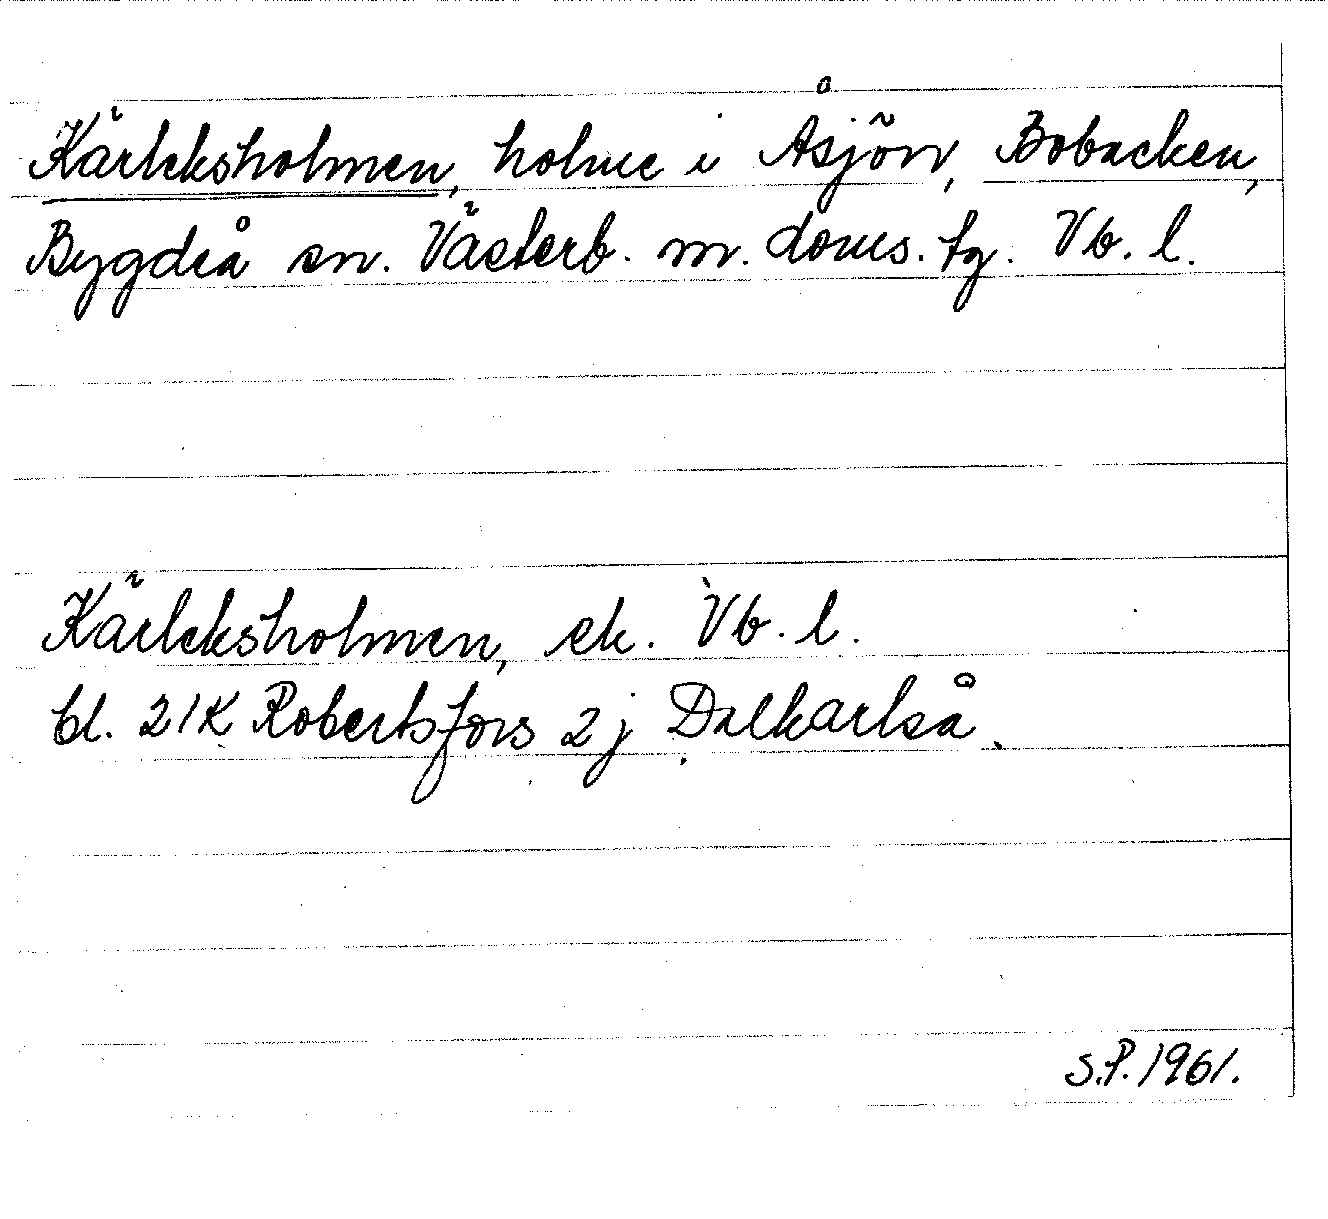 Kärleksholmen, holme i Åsjön, Bobacken,
Bygdeå sn. Västerb. m. doms. tg. Vb. l.
Kärleksholmen, ek. Vb. l.
bl. 21K Robertsfors 2j Dalkarlså.
S.P. 1961.